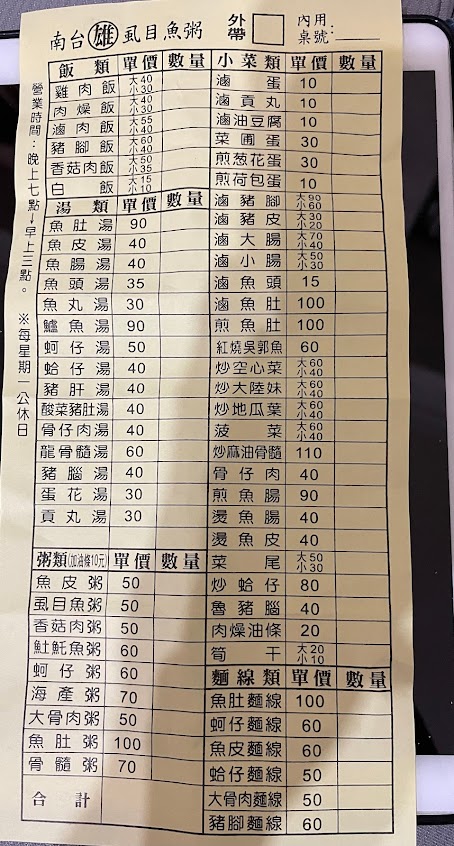 南台雄虱目魚粥
外帶
內用
桌號:
營業時間：晚上七點→早上三點。 ※每星期一公休日
飯類 單價 數量
雞肉飯 大40 小30
肉燥飯 大40 小30
滷肉飯 大55 小40
豬腳飯 大60 小40
香菇肉飯 大50 小35
白飯 大15 小10
湯類 單價 數量
魚肚湯 90
魚皮湯 40
魚腸湯 40
魚頭湯 35
魚丸湯 30
鱸魚湯 90
蚵仔湯 50
蛤仔湯 40
豬肝湯 40
酸菜豬肚湯 40
骨仔肉湯 40
龍骨髓湯 60
豬腦湯 40
蛋花湯 30
貢丸湯 30
粥類(加油條10元) 單價 數量
魚皮粥 50
虱目魚粥 50
香菇肉粥 50
魠魠魚粥 60
蚵仔粥 60
海產粥 70
大骨肉粥 50
魚肚粥 100
骨髓粥 70
合計
小菜類 單價 數量
滷蛋 10
滷貢丸 10
滷油豆腐 10
菜圃蛋 30
煎葱花蛋 30
煎荷包蛋 10
滷豬腳 大90 小60
滷豬皮 大30 小20
滷大腸 大70 小40
滷小腸 大50 小30
滷魚頭 15
滷魚肚 100
煎魚肚 100
紅燒吳郭魚 60
炒空心菜 大60 小40
炒大陸妹 大60 小40
炒地瓜葉 大60 小40
菠菜 大60 小40
炒麻油骨髓 110
骨仔肉 40
煎魚腸 90
燙魚腸 40
燙魚皮 40
菜尾 大50 小30
炒蛤仔 80
魯豬腦 40
肉燥油條 20
筍干 大20 小10
麵線類 單價 數量
魚肚麵線 100
蚵仔麵線 60
魚皮麵線 60
蛤仔麵線 50
大骨肉麵線 50
豬腳麵線 60